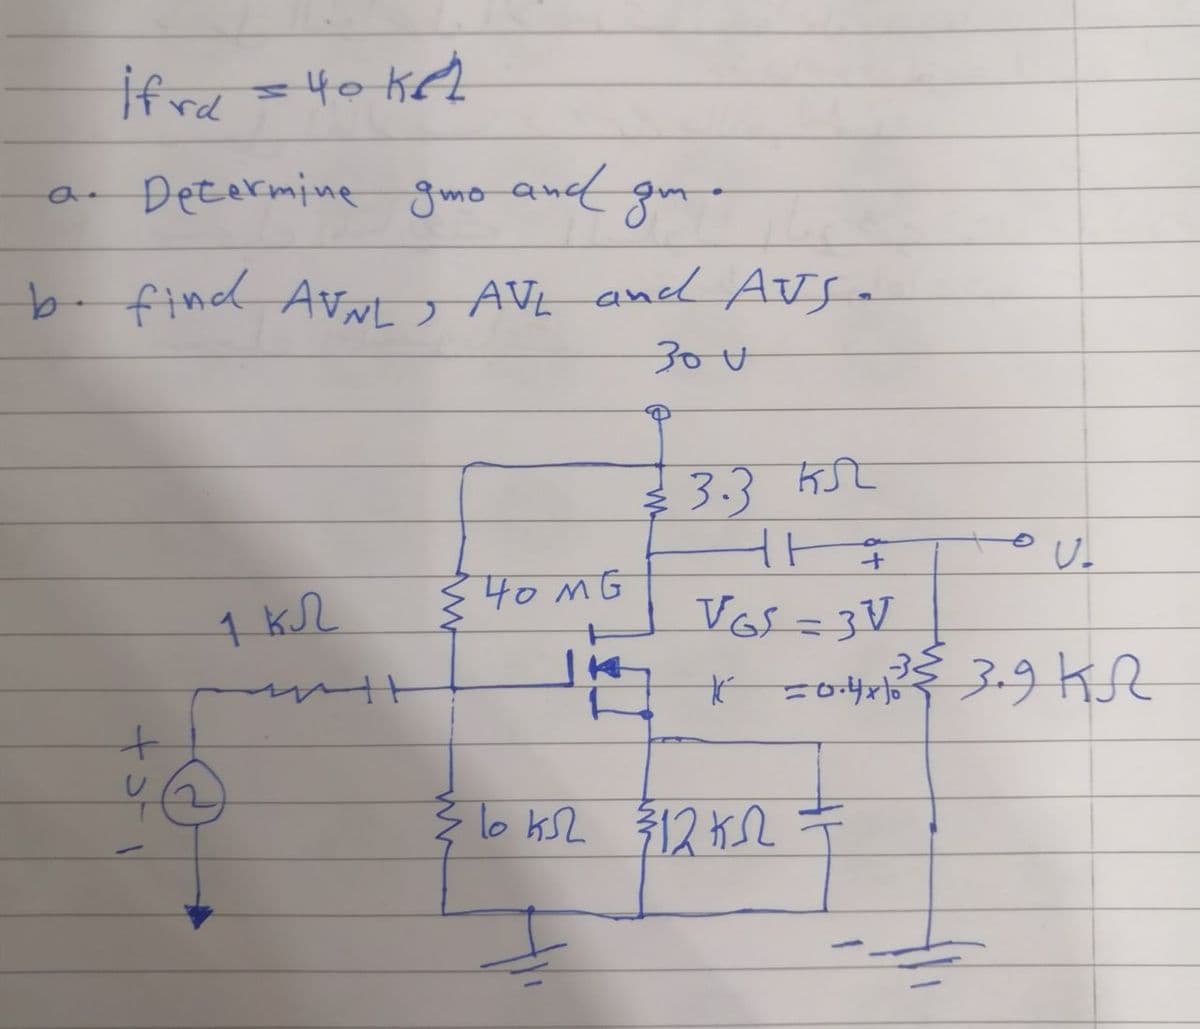 if rd = 40 KΩ
a. Determine gmo and gm.
b. find AVNL, AVL and AVS.
30 V
3.3 KΩ
+
40 MG
VGS = 3V
1 KΩ
K = 0.4x10⁻³
3.9 KΩ
+
10 KΩ
12 KΩ
-